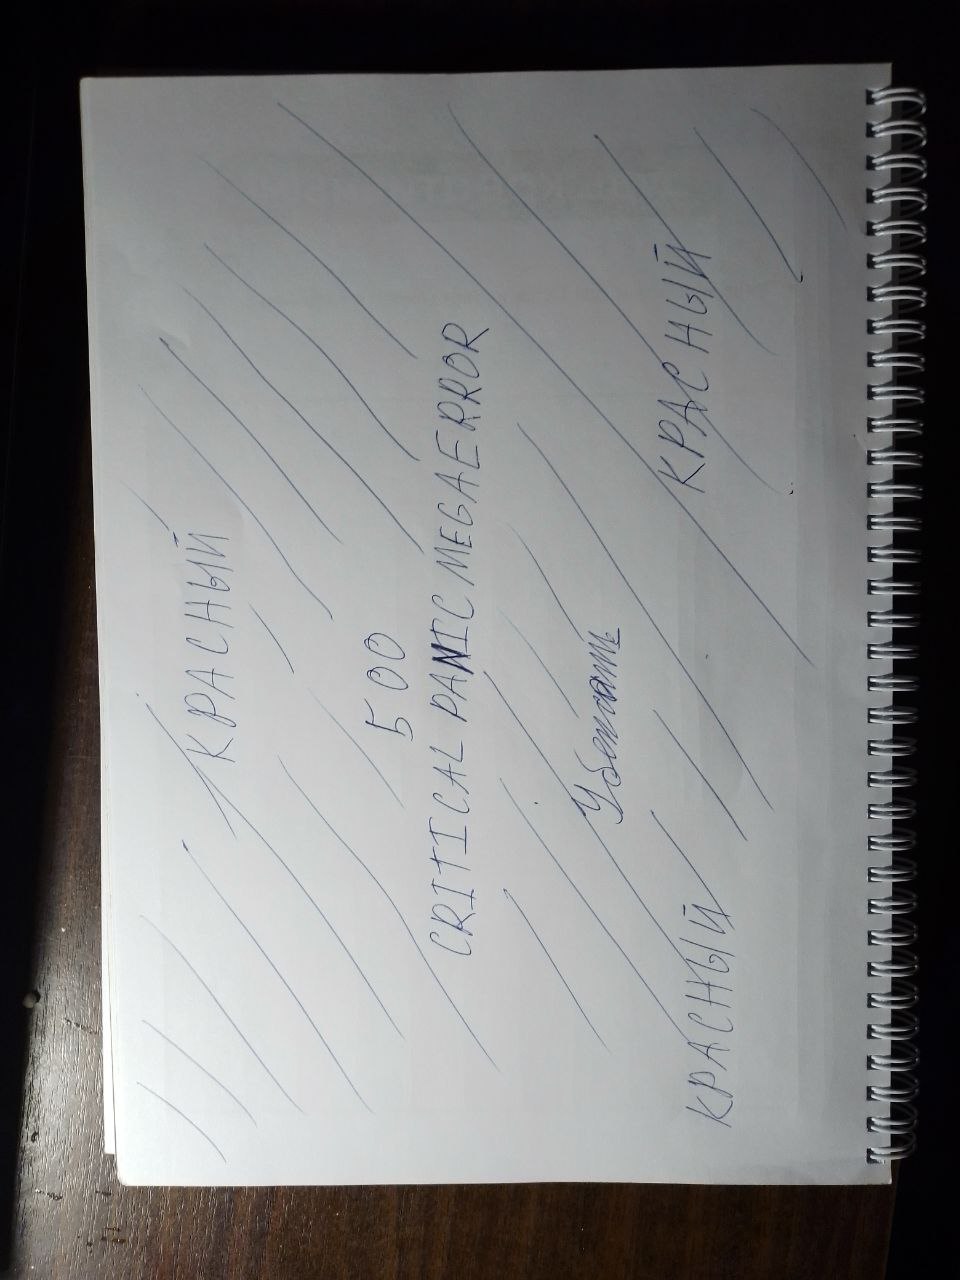 КРАСНЫЙ
500
CRITICAL PANIC MEGAERROR
Убежать
КРАСНЫЙ КРАСНЫЙ